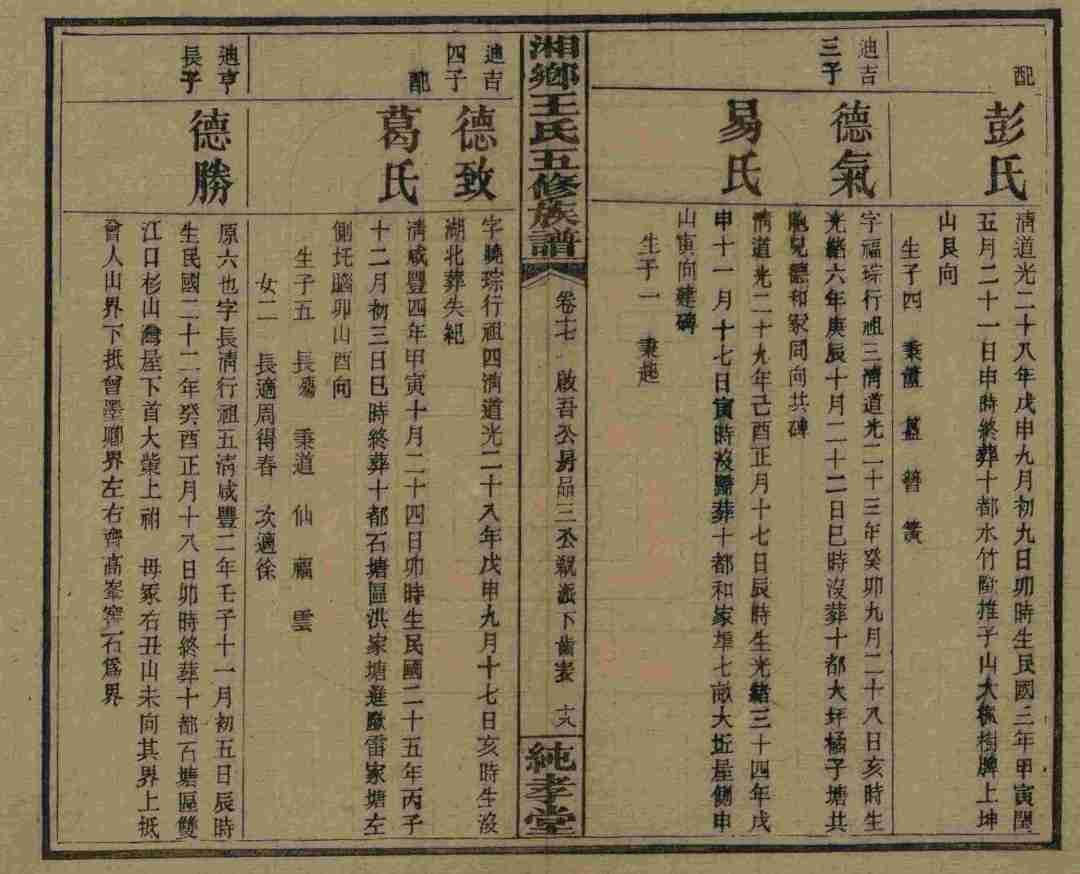 配
彭氏
清道光二十八年戊申九月初九日卯時生民國三年甲寅閏
五月二十一日申時終葬十都水竹隂推子山大樹牌上坤
山艮向
生子四 秉 普
迪吉
三子
德氣
字福琮行祖三清道光二十三年癸卯九月二十八日亥時生
光緒六年庚辰十月二十二日巳時沒葬十都大坪橘子塘共
胞兄德和冢同向共碑
易氏
清道光二十九年己酉正月十七日辰時生光緒三十四年戊
申十一月十七日寅時沒歸葬十都和家埠七畝大坵屋側申
山寅向建碑
生子一 秉
湘鄉王氏五修族譜
卷十七
啟吾公房品三公親派下齒表
十八
純孝堂
迪吉
四子
德致
字曉琮行祖四清道光二十八年戊申九月十七日亥時生沒
湖北葬失紀
配
葛氏
清咸豐四年甲寅十月二十四日卯時生民國二十五年丙子
十二月初三日巳時終葬十都石塘區洪家塘雷家塘左
側圫腦卯山酉向
生子五 長殤 秉道 仙 福 雲
女二 長適周得春 次適徐
迪亨
長子
德勝
原六也字長清行祖五清咸豐二年壬子十一月初五日辰時
生民國二十二年癸酉正月十八日卯時終葬十都石塘區雙
江口杉山灣屋下首大塋上祔 母冢右丑山未向其界上抵
曾人山界下抵曾墨卿界左右齊高峯窖石爲界